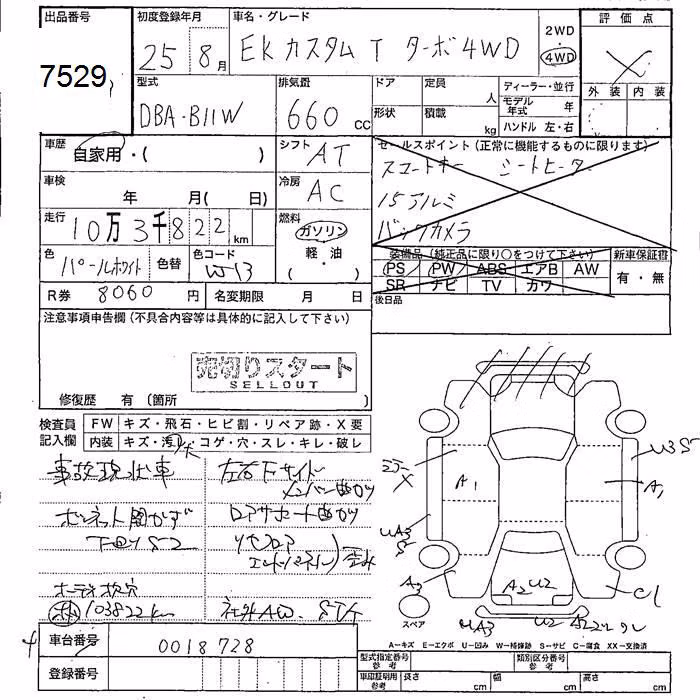 出品番号 初度登録年月 車名・グレード 2WD 評価点
7529 25 8月 EKカスタム T ターボ4WD ・ 4WD X
型式 排気量 ドア 定員 人 ディーラー・並行 外装 内装
DBA-B11W 660 cc 形状 積載 kg モデル年式 年
ハンドル 左・右
車歴 シフト セールスポイント (正常に機能するものに限ります)
自家用・( ) AT スマートキー シートヒーター
車検 冷房 15アルミ
年 月( 日) AC バックカメラ
走行 燃料
10万3千822km ガソリン
色 色替 色コード 軽・油 装備品(純正品に限り○をつけて下さい) 新車保証書
パールホワイト W13 ・( ) PS PW ABS エアB AW 有・無
R券 8060円 名変期限 月 日 SR ナビ TV カワ
後日品
注意事項申告欄 (不具合内容等は具体的に記入して下さい)
売切りスタート
SELLOUT
修復歴 有 (箇所 )
検査員 FW キズ・飛石・ヒビ割・リペア跡・X要
記入欄 内装 キズ・汚・コゲ・穴・スレ・キレ・破レ
事故現状車 左右下サイド
メンバー曲がり
ボンネット開かず ロアサポート曲がり
下回りS2 リヤフロア
エンドパネル 歪み
オーディオ欠穴
103822km 社外AW
車台番号 0018728
登録番号
ミラー X
A1
U3 S
A1
UA3 S
A3
A2 U2
C1
UA3
U2
スペア
A=キズ E=エクボ U=凹み W=補修跡 S=サビ C=腐食 XX=交換済
型式指定番号 参考 類別区分番号 参考
車印証明用 参考 長さ cm 幅 cm 高さ cm